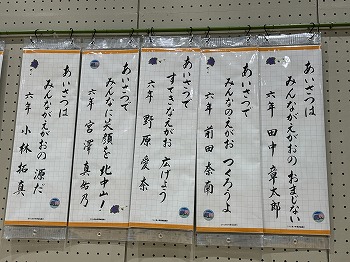 あいさつは
みんながえがおの おまじない
六年 田中 章太郎
あいさつで
みんなのえがお つくろうよ
六年 前田 奈南
あいさつで
すてきなえがお 広げよう
六年 野原 愛奈
あいさつで
みんなに笑顔を 北中山!
六年 宮澤 真佑乃
あいさつは
みんながえがおの 源だ
六年 小林 拓真